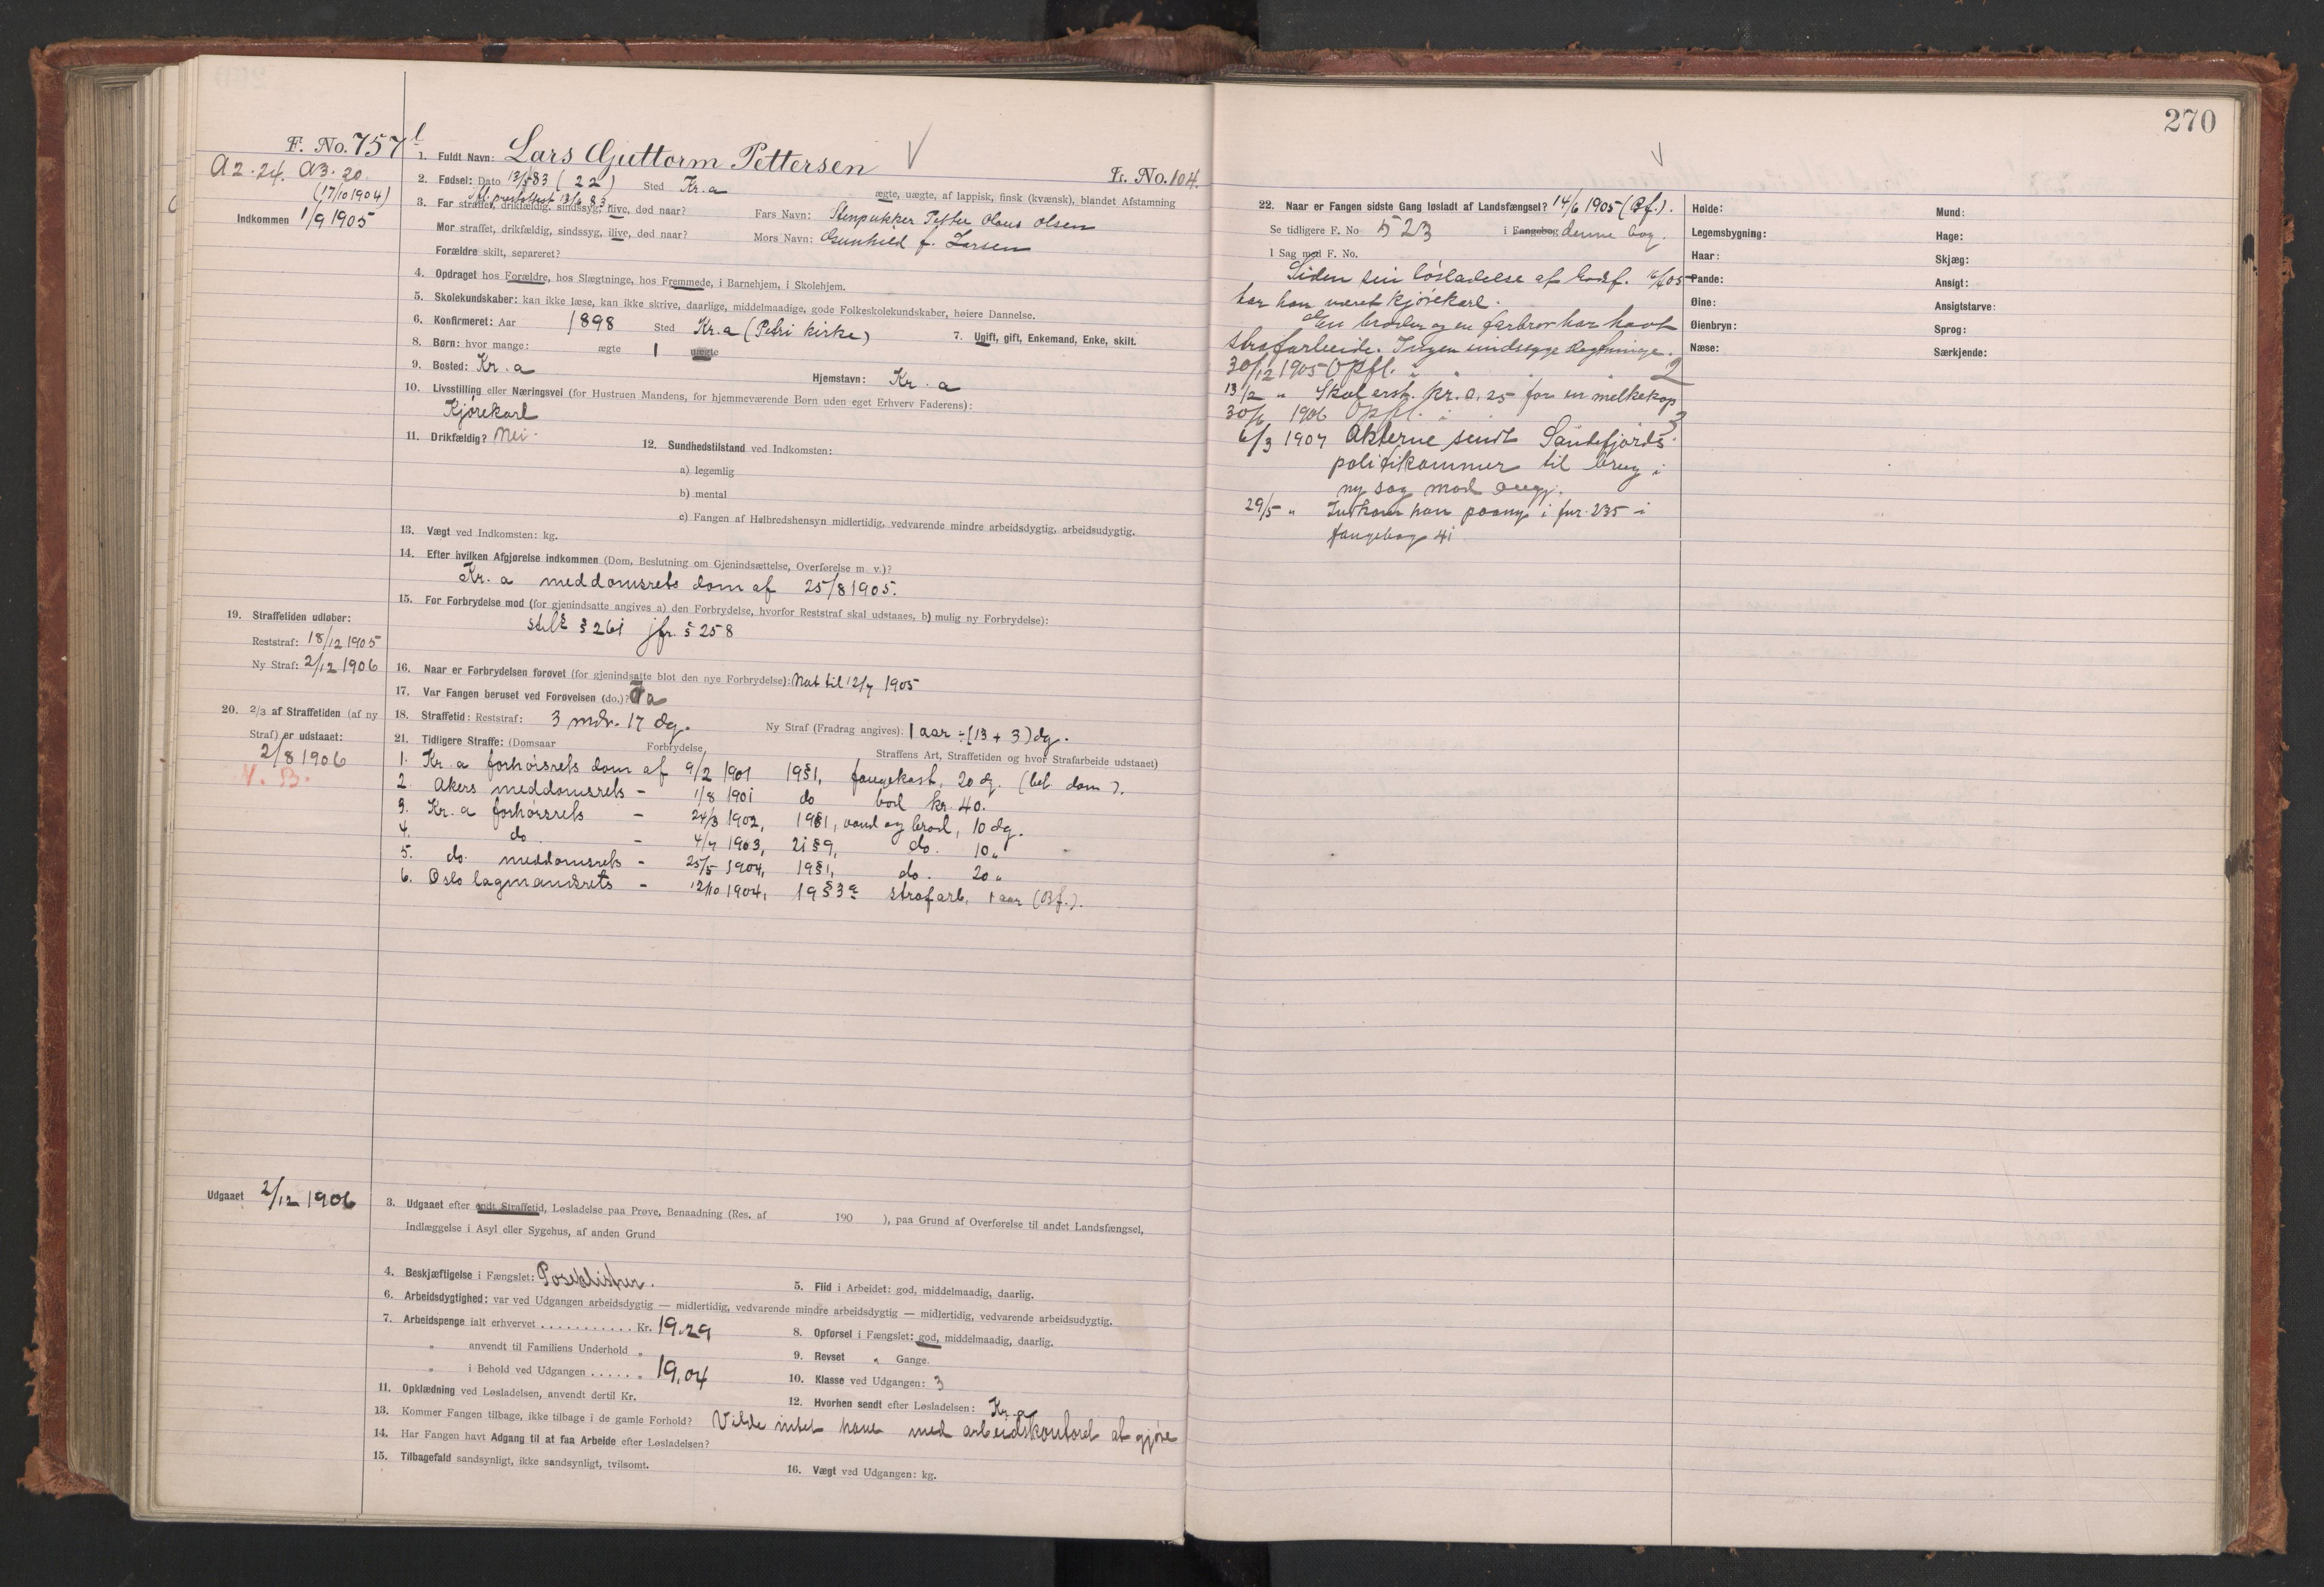 F. No. 757
A 2. 24. A 3. 20.
(17/10 1904)
Indkommen 1/9 1905
1. Fuldt Navn: Lars Guttorm Pettersen
Fr. No. 104.
2. Fødsel: Dato 13/5 83 (22) Sted Kr.a ægte, uægte, af lappisk, finsk (kvænsk), blandet Afstamning
3. Far straffet, drikfældig, sindssyg, ilive, død naar? Fars Navn: Stenpukker Petter Olaus Olsen
Mor straffet, drikfældig, sindssyg, ilive, død naar? Mors Navn: Gunhild f. Larsen
Forældre skilt, separeret?
4. Opdraget hos Forældre, hos Slægtninge, hos Fremmede, i Barnehjem, i Skolehjem.
5. Skolekundskaber: kan ikke læse, kan ikke skrive, daarlige, middelmaadige, gode Folkeskolekundskaber, høiere Dannelse.
6. Konfirmeret: Aar 1898 Sted Kr.a (Petri kirke) 7. Ugift, gift, Enkemand, Enke, skilt.
8. Børn: hvor mange: ægte 1 uægte
9. Bosted: Kr. a Hjemstavn: Kr. a
10. Livsstilling eller Næringsvei (for Hustruen Mandens, for hjemmeværende Børn uden eget Erhverv Faderens):
Kjørekarl
11. Drikfældig? Nei. 12. Sundhedstilstand ved Indkomsten:
a) legemlig
b) mental
c) Fangen af Helbredshensyn midlertidig, vedvarende mindre arbeidsdygtig, arbeidsudygtig.
13. Vægt ved Indkomsten: kg.
14. Efter hvilken Afgjørelse indkommen (Dom, Beslutning om Gjenindsættelse, Overførelse m. v.)?
Kr. a meddomsrets dom af 25/8 1905.
15. For Forbrydelse mod (for gjenindsatte angives a) den Forbrydelse, hvorfor Reststraf skal udstaaes, b) mulig ny Forbrydelse):
§ 261 jfr. § 258
19. Straffetiden udløber:
Reststraf: 18/12 1905
Ny Straf: 2/12 1906
16. Naar er Forbrydelsen forøvet (for gjenindsatte blot den nye Forbrydelse): Nat til 12/7 1905
17. Var Fangen beruset ved Forøvelsen (do.)? Ja
20. 2/3 af Straffetiden (af ny
Straf) er udstaaet:
2/8 1906
V. B.
18. Straffetid: Reststraf: 3 mdr. 17 dg. Ny Straf (Fradrag angives): 1 aar ÷ (13 + 3) dg.
21. Tidligere Straffe: (Domsaar Forbrydelse, Straffens Art, Straffetiden og hvor Strafarbeide udstaaet)
1. Kr. a forhørsrets dom af 9/2 1901 19 § 1, fængekost, 20 dg. (bet. dom).
2. Akers meddomsrets - 1/8 1901 do bod kr. 40.
3. Kr. a forhørsrets - 24/3 1902, 19 § 1, vand og brød, 10 dg.
4. do - 4/7 1903, 21 § 9, do. 10 "
5. do. meddomsrets - 25/5 1904, 19 § 1, do. 20 "
6. Oslo lagmandsrets - 12/10 1904, 19 § 3 a strafarb. 1 aar (Bf.).
Udgaaet 2/12 1906
3. Udgaaet efter endt Straffetid, Løsladelse paa Prøve, Benaadning (Res. af 190 ), paa Grund af Overførelse til andet Landsfængsel,
Indlæggelse i Asyl eller Sygehus, af anden Grund
4. Beskjæftigelse i Fængslet: Poseklistrer. 5. Flid i Arbeidet: god, middelmaadig, daarlig.
6. Arbeidsdygtighed: var ved Udgangen arbeidsdygtig — midlertidig, vedvarende mindre arbeidsdygtig — midlertidig, vedvarende arbeidsudygtig.
7. Arbeidspenge ialt erhvervet . . . . . . . . . . . Kr. 19.29 8. Opførsel i Fængslet: god, middelmaadig, daarlig.
" anvendt til Familiens Underhold " 9. Revset " Gange.
" i Behold ved Udgangen . . . . . " 19,04 10. Klasse ved Udgangen: 3
11. Opklædning ved Løsladelsen, anvendt dertil Kr. 12. Hvorhen sendt efter Løsladelsen: Kr. a
13. Kommer Fangen tilbage, ikke tilbage i de gamle Forhold? Vilde intet have med arbeidskontoret at gjøre
14. Har Fangen havt Adgang til at faa Arbeide efter Løsladelsen?
15. Tilbagefald sandsynligt, ikke sandsynligt, tvilsomt. 16. Vægt ved Udgangen: kg.
270
22. Naar er Fangen sidste Gang løsladt af Landsfængsel? 14/6 1905 (Bf.).
Se tidligere F. No 523 i Fangebog denne bog.
I Sag med F. No.
Siden sin løsladelse af Bodsf. 14/6 05
har han været kjørekarl.
En broder og en farbror har havt
strafarbeide. Ingen sindssyge slegtninge.
30/12 1905 Opfl. 2
13/2 " Skal erst. kr. 0.25 for en melkekop
30/6 1906 Opfl. 3
6/3 1907 Akterne sendt Sandefjords
politikammer til brug i
ny sag mod angj.
29/5 " Indkom han paany i fnr. 235 i
fangebog 41
Høide:
Legemsbygning:
Haar:
Pande:
Øine:
Øienbryn:
Næse:
Mund:
Hage:
Skjæg:
Ansigt:
Ansigtstarve:
Sprog:
Særkjende: